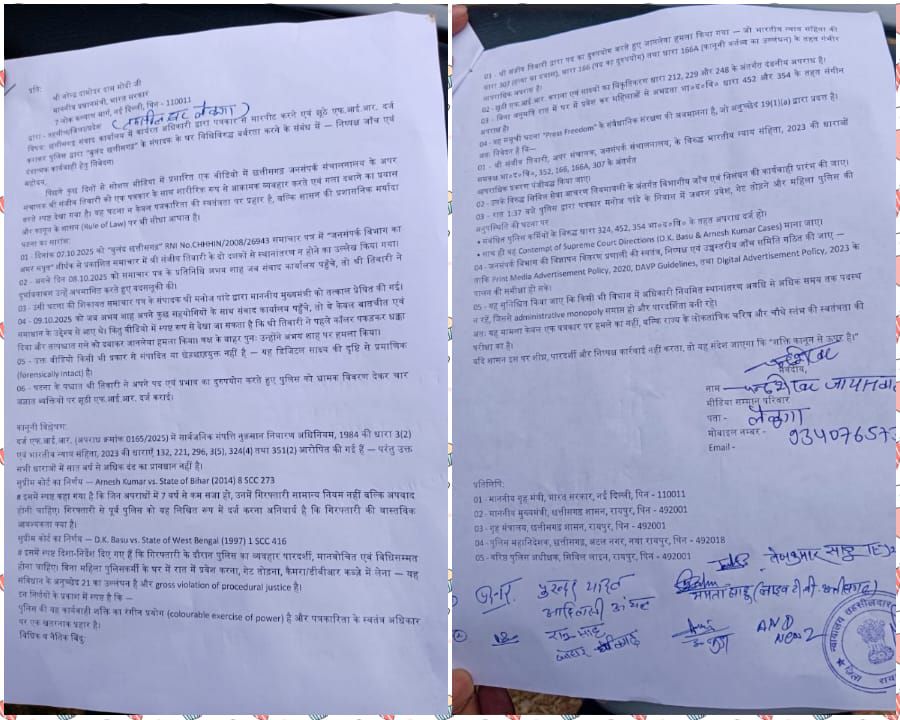 प्रति,
श्री नरेन्द्र दामोदर दास मोदी जी
माननीय प्रधानमंत्री, भारत सरकार
7 लोक कल्याण मार्ग, नई दिल्ली, पिन - 110011
द्वारा -
विषय: छत्तीसगढ़ संवाद कार्यालय में कार्यरत अधिकारी द्वारा पत्रकार से मारपीट करने एवं झूठे एफ.आई.आर. दर्ज
कराकर पुलिस द्वारा "बुलंद छत्तीसगढ़" के संपादक के घर विधिविरुद्ध बर्बरता करने के संबंध में — निष्पक्ष जाँच एवं
दंडात्मक कार्यवाही हेतु निवेदन।
महोदय,
पिछले कुछ दिनों से सोशल मीडिया में प्रसारित एक वीडियो में छत्तीसगढ़ जनसंपर्क संचालनालय के अपर
संचालक श्री संजीव तिवारी को एक पत्रकार के साथ शारीरिक रूप से आक्रामक व्यवहार करते एवं गला दबाने का प्रयास
करते स्पष्ट देखा गया है। यह घटना न केवल पत्रकारिता की स्वतंत्रता पर प्रहार है, बल्कि शासन की प्रशासनिक मर्यादा
और कानून के शासन (Rule of Law) पर भी सीधा आघात है।
घटना का सारांश:
01 - दिनांक 07.10.2025 को "बुलंद छत्तीसगढ़" RNI No.CHHHIN/2008/26943 समाचार पत्र में "जनसंपर्क विभाग का
अमर सपूत" शीर्षक से प्रकाशित समाचार में श्री संजीव तिवारी के दो दशकों से स्थानांतरण न होने का उल्लेख किया गया।
02 - अगले दिन 08.10.2025 को समाचार पत्र के प्रतिनिधि अभय शाह जब संवाद कार्यालय पहुँचे, तो श्री तिवारी ने
दुर्भावनावश उन्हें अपमानित करते हुए बदसलूकी की।
03 - उसी घटना की शिकायत समाचार पत्र के संपादक श्री मनोज पांडे द्वारा माननीय मुख्यमंत्री को तत्काल प्रेषित की गई।
04 - 09.10.2025 को जब अभय शाह अपने कुछ सहयोगियों के साथ संवाद कार्यालय पहुंचे, तो वे केवल बातचीत एवं
समाधान के उद्देश्य से आए थे। किंतु वीडियो में स्पष्ट रूप से देखा जा सकता है कि श्री तिवारी ने पहले कॉलर पकड़कर धक्का
दिया और तत्पश्चात गले को दबाकर जानलेवा हमला किया। कक्ष के बाहर पुनः उन्होंने अभय शाह पर हमला किया।
05 - उक्त वीडियो किसी भी प्रकार से संपादित या छेड़छाड़युक्त नहीं है — यह डिजिटल साक्ष्य की दृष्टि से प्रमाणिक
(forensically intact) है।
06 - घटना के पश्चात श्री तिवारी ने अपने पद एवं प्रभाव का दुरुपयोग करते हुए पुलिस को भ्रामक विवरण देकर चार
अज्ञात व्यक्तियों पर झूठी एफ.आई.आर. दर्ज कराई।
कानूनी विश्लेषण:
दर्ज एफ.आई.आर. (अपराध क्रमांक 0165/2025) में सार्वजनिक संपत्ति नुकसान निवारण अधिनियम, 1984 की धारा 3(2)
एवं भारतीय न्याय संहिता, 2023 की धाराएँ 132, 221, 296, 3(5), 324(4) तथा 351(2) आरोपित की गई हैं — परंतु उक्त
सभी धाराओं में सात वर्ष से अधिक दंड का प्रावधान नहीं है।
सुप्रीम कोर्ट का निर्णय — Arnesh Kumar vs. State of Bihar (2014) 8 SCC 273
# इसमें स्पष्ट कहा गया है कि जिन अपराधों में 7 वर्ष से कम सजा हो, उनमें गिरफ्तारी सामान्य नियम नहीं बल्कि अपवाद
होनी चाहिए। गिरफ्तारी से पूर्व पुलिस को यह लिखित रूप में दर्ज करना अनिवार्य है कि गिरफ्तारी की वास्तविक
आवश्यकता क्या है।
सुप्रीम कोर्ट का निर्णय — D.K. Basu vs. State of West Bengal (1997) 1 SCC 416
# इसमें स्पष्ट दिशा-निर्देश दिए गए हैं कि गिरफ्तारी के दौरान पुलिस का व्यवहार पारदर्शी, मानवोचित एवं विधिसम्मत
होना चाहिए। बिना महिला पुलिसकर्मी के घर में रात में प्रवेश करना, गेट तोड़ना, कैमरा/डीवीआर कब्जे में लेना — यह
संविधान के अनुच्छेद 21 का उल्लंघन है और gross violation of procedural justice है।
इन निर्णयों के प्रकाश में स्पष्ट है कि —
पुलिस की यह कार्यवाही शक्ति का रंगीन प्रयोग (colourable exercise of power) है और पत्रकारिता के स्वतंत्र अधिकार
पर एक खतरनाक प्रहार है।
विधिक व नैतिक बिंदु:
01 - श्री संजीव तिवारी द्वारा पद का दुरुपयोग करते हुए जानलेवा हमला किया गया — जो भारतीय न्याय संहिता की
धारा 307 (हत्या का प्रयास), धारा 166 (पद का दुरुपयोग) तथा धारा 166A (कानूनी कर्तव्य का उल्लंघन) के तहत गंभीर
आपराधिक अपराध है।
02 - झूठी एफ.आई.आर. कराना एवं साक्ष्यों का विकृतिकरण धारा 212, 229 और 248 के अंतर्गत दंडनीय अपराध है।
03 - बिना अनुमति रात में घर में प्रवेश कर महिलाओं से अभद्रता भा०द०वि० धारा 452 और 354 के तहत संगीन
अपराध है।
04 - यह समूची घटना "Press Freedom" के संवैधानिक संरक्षण की अवमानना है, जो अनुच्छेद 19(1)(a) द्वारा प्रदत्त है।
अतः निवेदन है कि—
01 - श्री संजीव तिवारी, अपर संचालक, जनसंपर्क संचालनालय, के विरुद्ध भारतीय न्याय संहिता, 2023 की धाराओं
समकक्ष भा०द०वि०, 352, 166, 166A, 307 के अंतर्गत
आपराधिक प्रकरण पंजीबद्ध किया जाए।
02 - उनके विरुद्ध सिविल सेवा आचरण नियमावली के अंतर्गत विभागीय जाँच एवं निलंबन की कार्यवाही प्रारंभ की जाए।
03 - रात 1:37 बजे पुलिस द्वारा पत्रकार मनोज पांडे के निवास में जबरन प्रवेश, गेट तोड़ने और महिला पुलिस की
अनुपस्थिति की घटना पर
• संबंधित पुलिस कर्मियों के विरुद्ध धारा 324, 452, 354 भा०द०वि० के तहत अपराध दर्ज हो।
• साथ ही यह Contempt of Supreme Court Directions (D.K. Basu & Arnesh Kumar Cases) माना जाए।
04 - जनसंपर्क विभाग की विज्ञापन वितरण प्रणाली की स्वतंत्र, निष्पक्ष एवं उच्चस्तरीय जाँच समिति गठित की जाए —
ताकि Print Media Advertisement Policy, 2020, DAVP Guidelines, तथा Digital Advertisement Policy, 2023 के
पालन की समीक्षा हो सके।
05 - यह सुनिश्चित किया जाए कि किसी भी विभाग में अधिकारी नियमित स्थानांतरण अवधि से अधिक समय तक पदस्थ
न रहें, जिससे administrative monopoly समाप्त हो और पारदर्शिता बनी रहे।
अतः यह मामला केवल एक पत्रकार पर हमले का नहीं, बल्कि राज्य के लोकतांत्रिक चरित्र और चौथे स्तंभ की स्वतंत्रता की
परीक्षा का है।
यदि शासन इस पर शीघ्र, पारदर्शी और निष्पक्ष कार्रवाई नहीं करता, तो यह संदेश जाएगा कि "शक्ति कानून से ऊपर है।"
भवदीय,
नाम -
मीडिया सम्मान परिवार
पता -
मोबाइल नम्बर -
Email -
प्रतिलिपि:
01 - माननीय गृह मंत्री, भारत सरकार, नई दिल्ली, पिन - 110011
02 - माननीय मुख्यमंत्री, छत्तीसगढ़ शासन, रायपुर, पिन - 492001
03 - गृह मंत्रालय, छत्तीसगढ़ शासन, रायपुर, पिन - 492001
04 - पुलिस महानिदेशक, छत्तीसगढ़, अटल नगर, नया रायपुर, पिन - 492018
05 - वरिष्ठ पुलिस अधीक्षक, सिविल लाइन, रायपुर, पिन - 492001